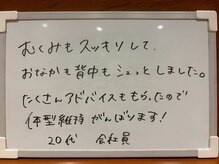 むくみもスッキリして、
おなかも背中もシュッとしました。
たくさんアドバイスももらったので
体型維持がんばります!
20代 会社員